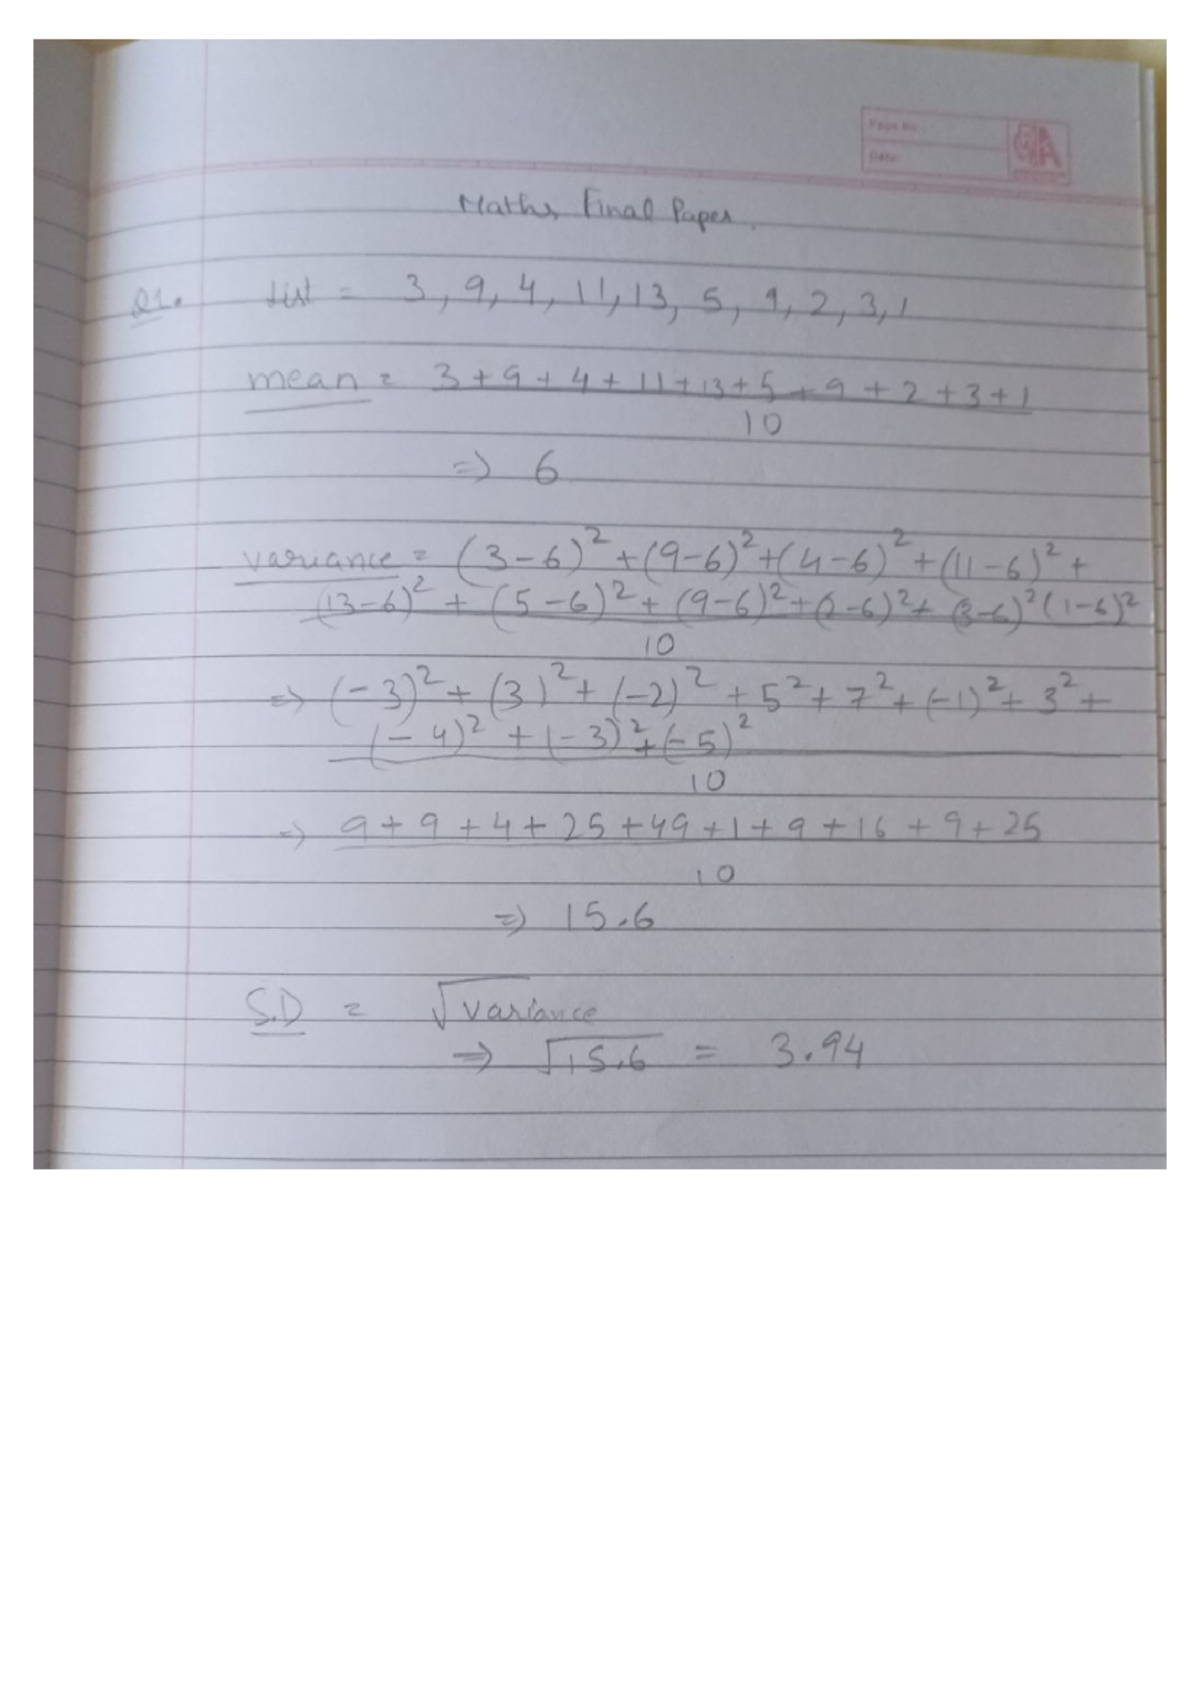 Page No.
Date:
GA
Maths Final Paper.
Q1. List = 3, 9, 4, 11, 13, 5, 9, 2, 3, 1
mean = 3 + 9 + 4 + 11 + 13 + 5 + 9 + 2 + 3 + 1
10
⇒ 6
variance = (3-6)² + (9-6)² + (4-6)² + (11-6)² +
(13-6)² + (5-6)² + (9-6)² + (2-6)² + (3-6)² (1-6)²
10
⇒ (-3)² + (3)² + (-2)² + 5² + 7² + (-1)² + 3² +
(-4)² + (-3)² + (-5)²
10
⇒ 9 + 9 + 4 + 25 + 49 + 1 + 9 + 16 + 9 + 25
10
⇒ 15.6
S.D = √variance
⇒ √15.6 = 3.94